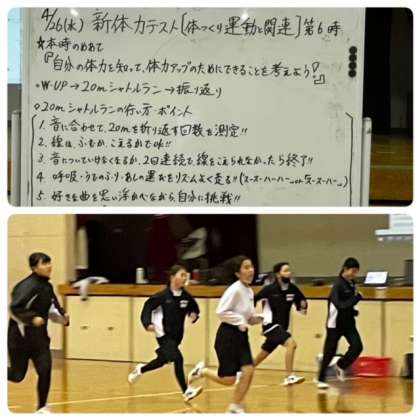 4/26(水) 新体力テスト〔体つくり運動と関連〕第6時
☆本時のめあて
『自分の体力を知って、体力アップのためにできることを考えよう!』
◦W-UP→20mシャトルラン→振り返り
◇20mシャトルランの行い方・ポイント
1. 音に合わせて、20mを折り返す回数を測定!!
2. 線は、ふむか、こえるかでOK!!
3. 音についていけなくなるか、2回連続で線をこえられなかったら終了!!
4. 呼吸・うでのふり・あしの運びをリズムよく走る!!(スースーハーハー…or スースーハー…)
5. 好きな曲を思い浮かべながら、自分に挑戦!!